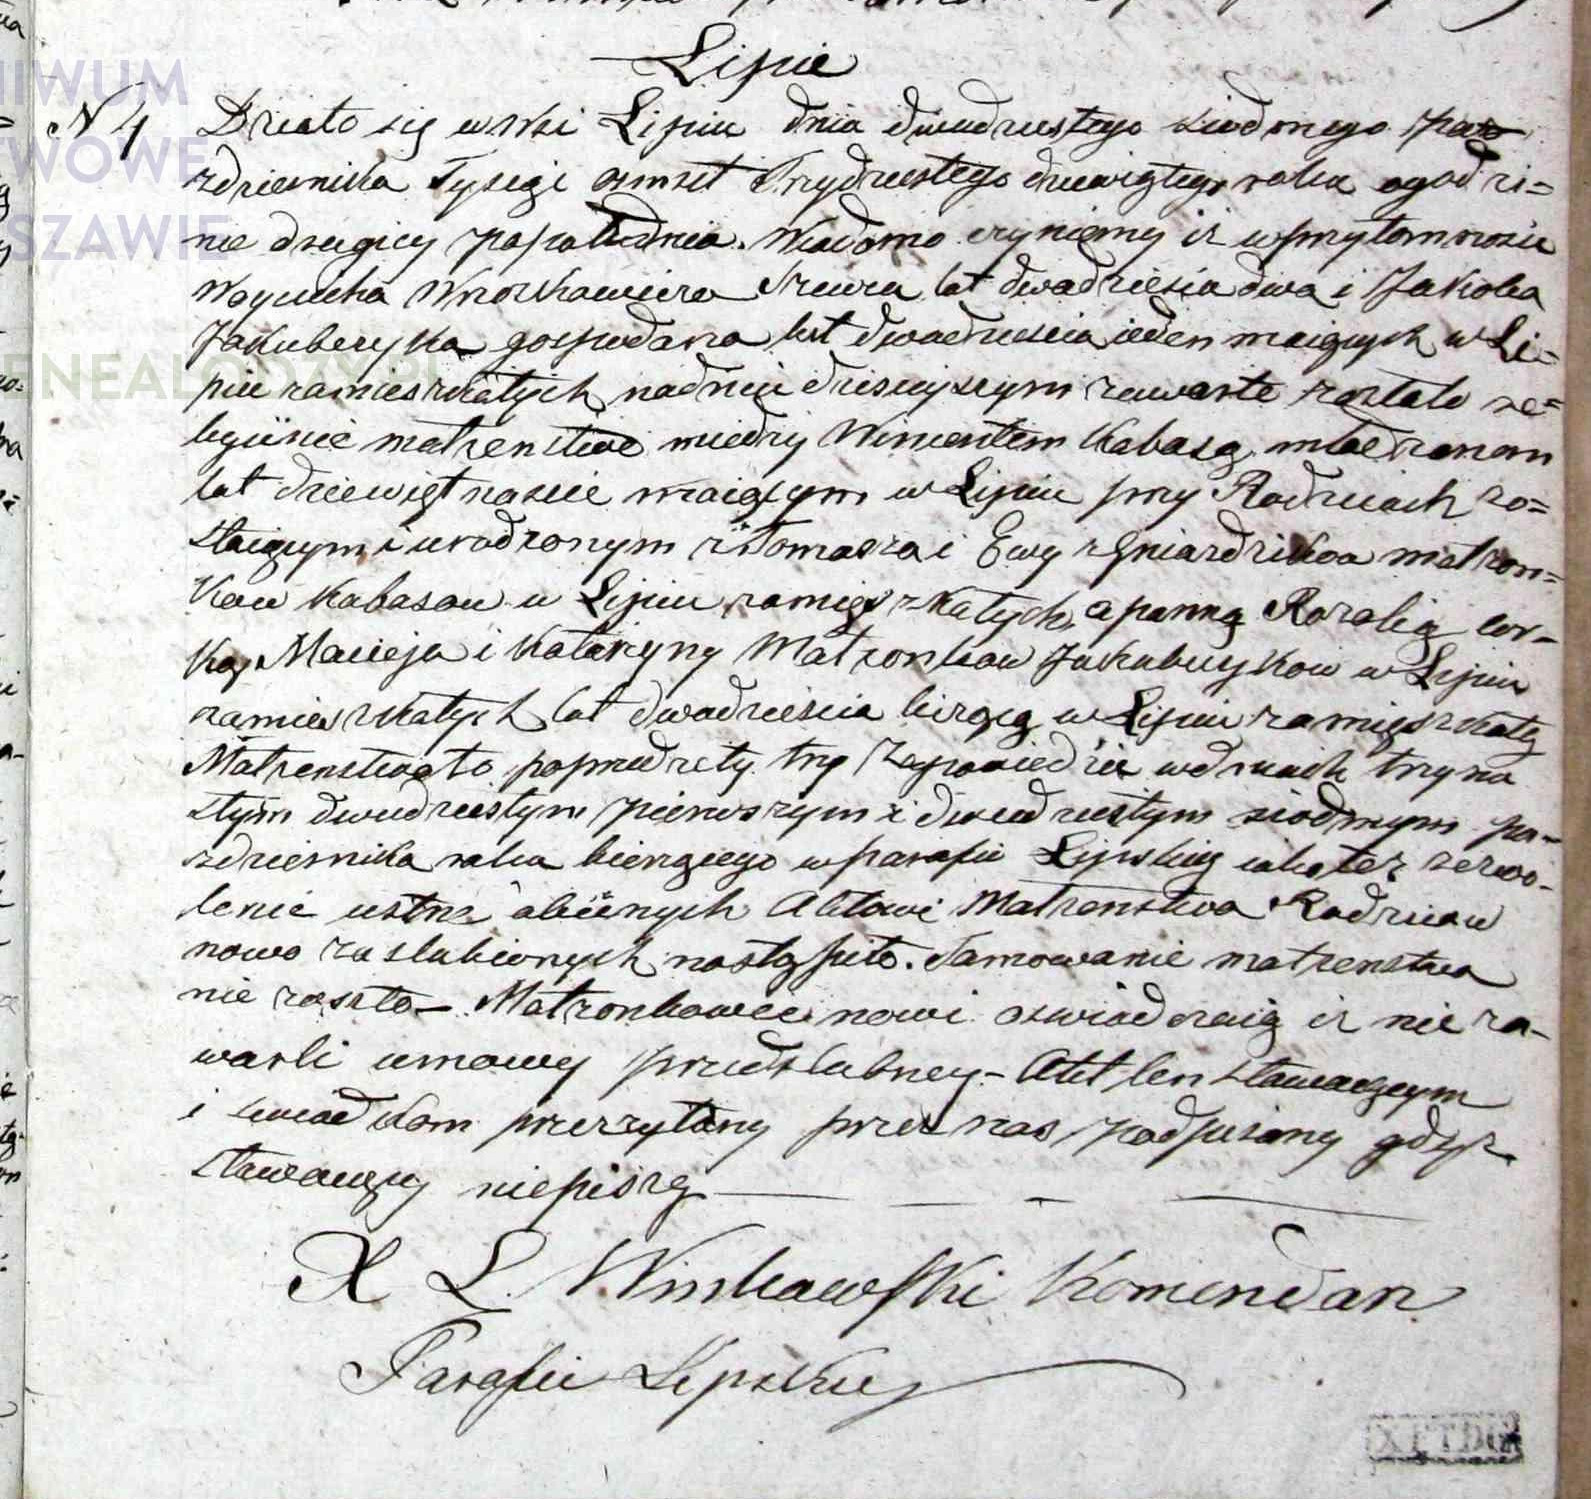 Lipie
N 4 Działo się w Wsi Lipiu dnia dwudziestego siodmego paz
zdziernika Tysegi osmset Trzydziestego dziewiątego roku ogodzi=
nie drugiey popołudniu. Wiadomo czyniemy iż wprzytomnosci
Woyciecha Szewca lat dwadziescia dwa i Jakoba
Jakubczyka gospodarza lat dwadziescia ieden maiących w Li=
piu zamieszkałych nadniu dzisieyszym zawarte zostało re=
ligiinie małzenstwo miedzy Wincentem Kabasą młodzianem
lat dziewiętnascie maiącym w Lipiu przy Rodzicach zo=
staiącym i urodzonym z Tomasza i Ewy z Gniazdzikow małzon=
kow Kabasow w Lipiu zamięszkałych, a panną Rozalią cor=
ką Macieja i Katarzyny Małzonkow Jakubczykow w Lipiu
zamieszkałych lat dwadziescia liczącą w Lipiu zamięszkałą
Małzenstwo to poprzedzeły trzy Zapowiedzie wdniach trzyna
stym dwudziestym pierwszym i dwudziestym siodmym pa=
zdziernika roku bierzącego w parafii Lipskiey iako też zezwo-
lenie ustne obecnych Aktowi Małzenstwa Rodzicow
nowo zaslubionych nastąpiło. Tamowanie małzenstwa
nie zaszło – Małzonkowie nowi oswiadczaią iż nie za-
warli umowy przedslubney – Akt ten stawaiącym
i swiadkom przeczytany przez nas podpisany gdyż
stawaiący niepiszą
X L. Komendarz
Parafii Lipskiey